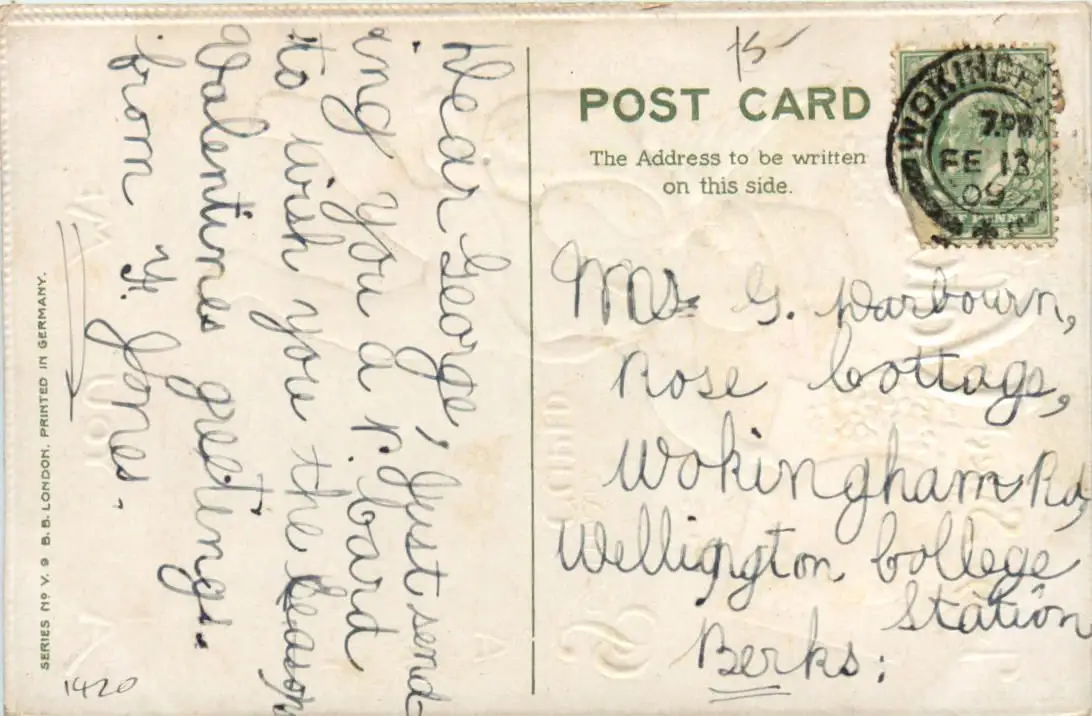 15-
POST CARD
The Address to be written
on this side.
WOKINGH
7.PM
FE 13
09
F PENNY
Dear George, Just send-
ing you a p.card
to wish you the season
Valentines greetings.
from H. Jones.
G. Darbourn,
Rose Cottage,
Wokingham Rd,
Wellington College
Station
Berks:
SERIES No V. 9 B.B. LONDON. PRINTED IN GERMANY.
1420